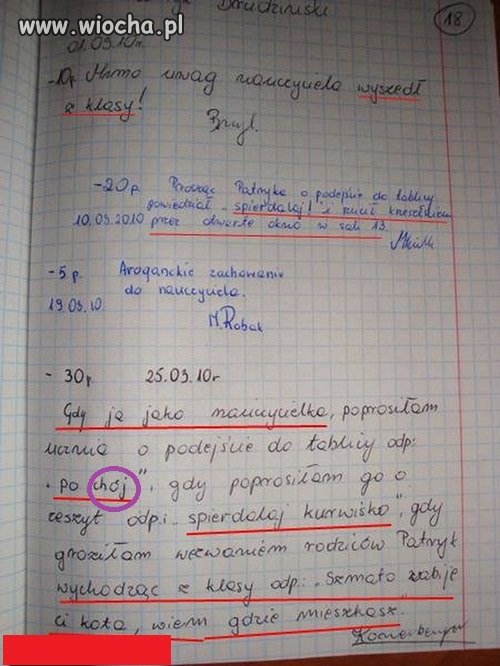 www.wiocha.pl
18
01.09.10r.
-10p Mimo uwag nauczyciela wyszedł
z klasy!
-20p. Prosząc Patryka o podejście do tablicy
powiedział "spierdalaj!" i rzucił krzesełkiem
10.09.2010 przez otwarte okno w sali 13.
-5 p. Aroganckie zachowanie
do nauczyciela.
19.09.10.
M.Robak
- 30p 25.09.10r
Gdy ja jako nauczycielka, poprosiłam
ucznia o podejście do tablicy odp:
"po chój", gdy poprosiłam go o
zeszyt odp: "spierdalaj kurwisko", gdy
groziłam wezwaniem rodziców Patryk
wychodząc z klasy odp: "Szmato zabije
ci kota, wiem gdzie mieszkasz."